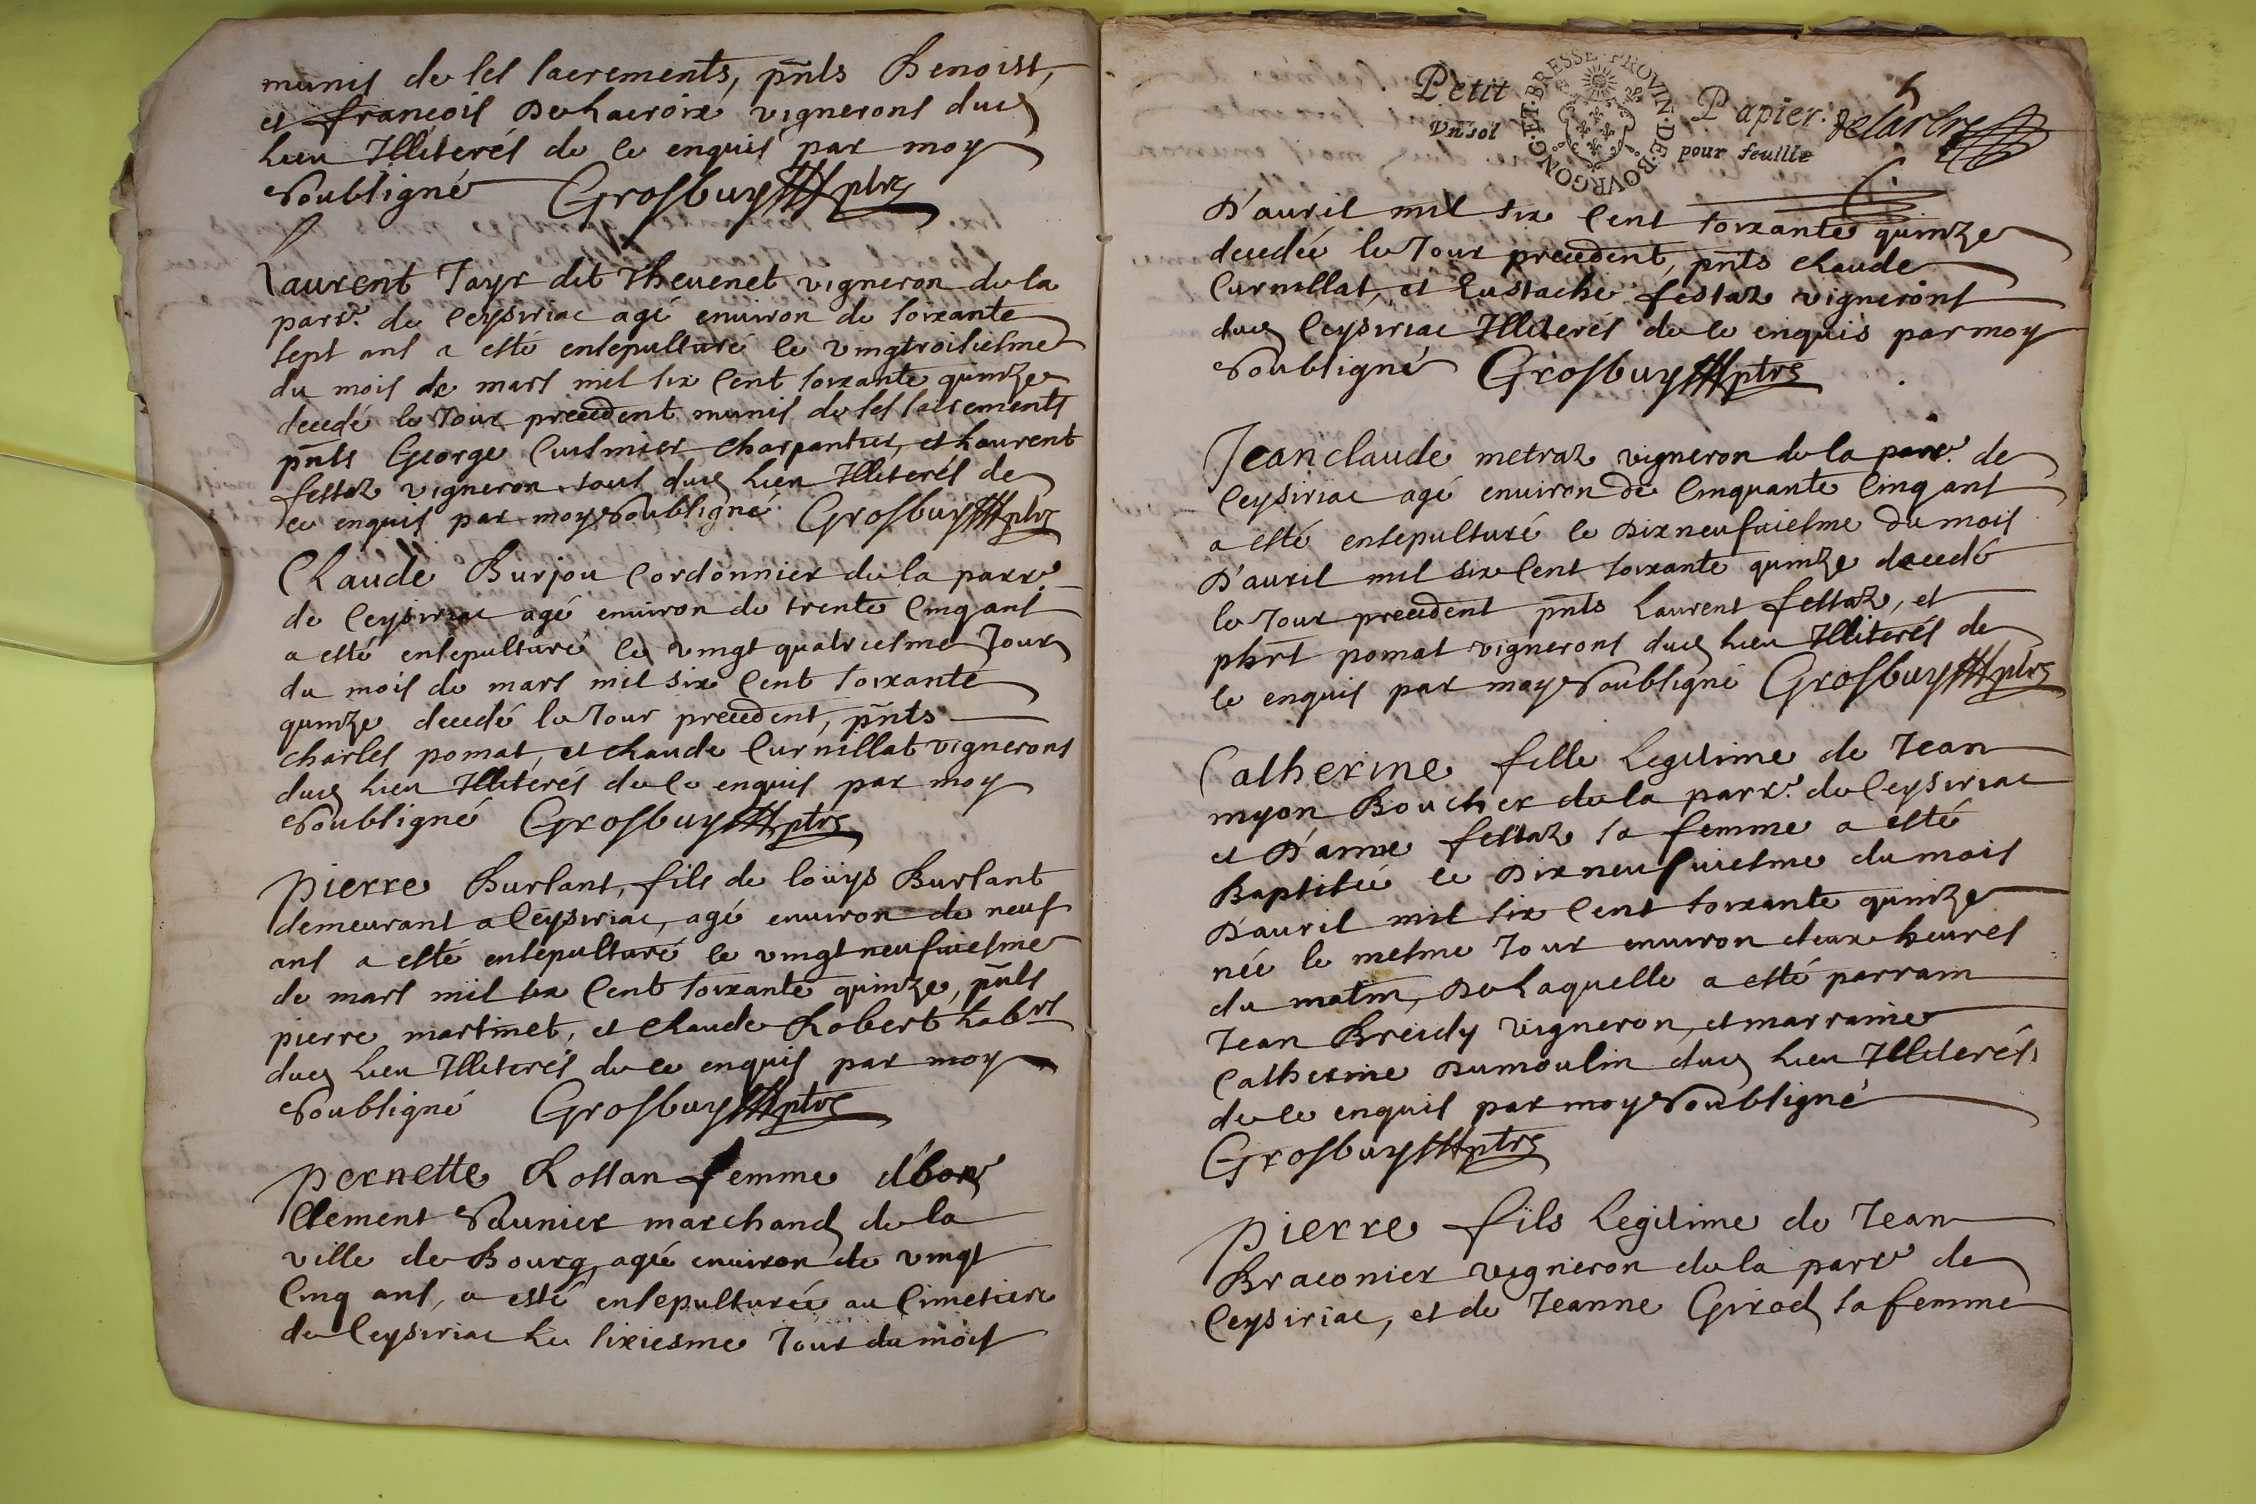 munis de ses sacrements, pnts Benoist,
et francois De Lacroix vignerons dud
Lieu Illiterés de ce enquis par moy
Soubsigné Grosbuy ptre
Laurent Jayr dit Thevenet vigneron de la
parr.e de Ceysiriac agé environ de soixante
sept ans a esté ensepulturé le vingtroisiesme
du mois de mars mil six Cent soixante quinze
decedé le Jour precedent munis de ses sacrements
pnts George Cusinier charpantier, et Laurent
festaz vigneron tous dud Lieu Illiterés de
ce enquis par moy Soubsigné Grosbuy ptre
Claude Burjou Cordonnier de la parr.e
de Ceysiriac agé environ de trente Cinq ans
a esté ensepulturé le vingt quatriesme Jour
du mois de mars mil six Cent soixante
quinze decedé le Jour precedent, pnts
charles pomat, et Claude Curnillat vignerons
dud Lieu Illiterés de ce enquis par moy
Soubsigné Grosbuy ptre
pierre Burlant, fils de loüys Burlant
demeurant a Ceysiriac, agé environ de neuf
ans a esté ensepulturé le vingt neufviesme
de mars mil six Cent soixante quinze, pnts
pierre martinet, et Claude Robert Labrs
dud Lieu Illiterés de ce enquis par moy
Soubsigné Grosbuy ptre
pernette Rossan femme d'hon
Clement Saunier marchand de la
ville de Bourg, agée environ de vingt
Cinq ans, a esté ensepulturée au Cimetiere
de Ceysiriac Le sixiesme Jour du mois
Petit Papier: Delarbre
Vn sol pour feuille
BOVRGONG·ET·BRESSE·PROVIN·DE
D'avril mil six Cent soixante quinze
decedée le Jour precedent, pnts Claude
Curnillat, et Eustache festaz vignerons
dud Ceysiriac Illiterés de ce enquis par moy
Soubsigné Grosbuy ptre
Jean claude metraz vigneron de la parr.e de
Ceysiriac agé environ de Cinquante Cinq ans
a esté ensepulturé le Dixneufviesme Du mois
D'avril mil six Cent soixante quinze decedé
le Jour precedent pnts Laurent festaz, et
phrt pomat vignerons dud Lieu Illiterés de
ce enquis par moy Soubsigné Grosbuy ptre
Catherine fille Legitime de Jean
myon Boucher de la parr.e de Ceysiriac
et D'anne festaz sa femme a esté
Baptisée le Dixneufviesme du mois
D'avril mil six Cent soixante quinze
née le mesme Jour environ deux heures
du matin, De Laquelle a esté parrain
Jean Breidy vigneron, et marraine
Catherine Dumoulin dud Lieu Illiterés
de ce enquis par moy Soubsigné
Grosbuy ptre
pierre fils Legitime de Jean
Braconier vigneron de la parr.e de
Ceysiriac, et de Jeanne Girod sa femme